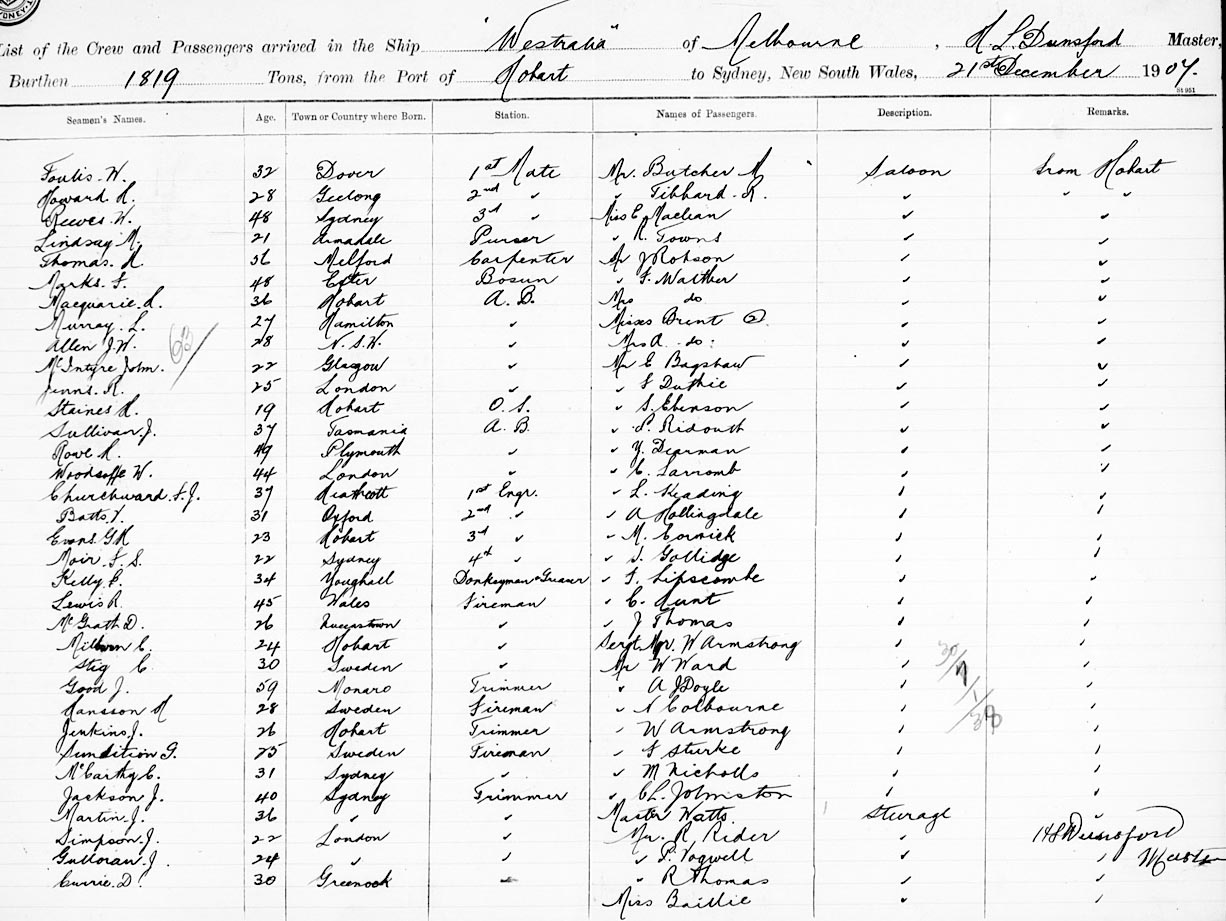 SYDNEY
List of the Crew and Passengers arrived in the Ship "Westralia" of Melbourne, H. L. Dunsford Master,
Burthen 1819 Tons, from the Port of Hobart to Sydney, New South Wales, 21st December 1907.
Seamen's Names. Age. Town or Country where Born. Station. Names of Passengers. Description. Remarks.
Foulis. W. 32 Dover 1st Mate Mr. Butcher A Saloon from Hobart
Howard. H. 28 Geelong 2nd " " Tibbard. R. " " "
Reeves. W. 48 Sydney 3rd " Miss E. Maclean " "
Lindsay M. 21 Armadale Purser " R. Towns " "
Thomas. H. 36 Milford Carpenter Mr J Robson " "
Marks. F. 48 Bosun " F. Walther " "
Macquarie. H. 36 Hobart A. B. Mrs do " "
Murray. L. 27 Hamilton " Misses Brent (2) " "
Allen J. W. 28 N. S. W. " Mrs A. do: " "
63/
McIntyre John. 22 Glasgow " Mr E Bagshaw " "
Jenns. R. 25 London " " F Duthie " "
Staines H. 19 Hobart O. S. " S. Ebenson " "
Sullivan. J. 37 Tasmania A. B. " P. Ridouth " "
Rowe H. 49 Plymouth " " Y. Dearman " "
Woodroffe W. 44 London " " C. Larromb " "
Churchward. F. J. 37 Heathcott 1st Engr. " L. Keading " "
Batts. V. 31 Oxford 2nd " " A Hollingdale " "
Evans. G H 23 Hobart 3rd " " M. Cormick " "
Moir. F. S. 22 Sydney 4th " " S. Gollidge " "
Kelly. P. 34 Youghall Donkeyman & Greaser " F. Lipscombe " "
Lewis R. 45 Wales Fireman " C. Hunt " "
McGrath D. 26 Queenstown " " J Thomas " "
Milburn C. 24 Hobart " Sergt. Mjr. W Armstrong " "
Stig C 30 Sweden " Mr W Ward " "
Good J. 59 Monaro Trimmer " A J Doyle " "
Hansson H 28 Sweden Fireman " N Colbourne " "
Jenkins J. 26 Hobart Trimmer " W Armstrong " "
Sundition G. 25 Sweden Fireman " F Sturke " "
McCarthy C. 31 Sydney " " M Nicholls " "
Jackson J. 40 Sydney Trimmer " C L. Johnston " "
Martin. J. 36 " " Master Watts. Sturage "
Simpson. J. 22 London " Mr. R Rider " H L Dunsford
Gulloran. J. 24 " " " P. Vogwell " " Master
Currie. D. 30 Greenock " " R Thomas " "
Miss Baillie " "